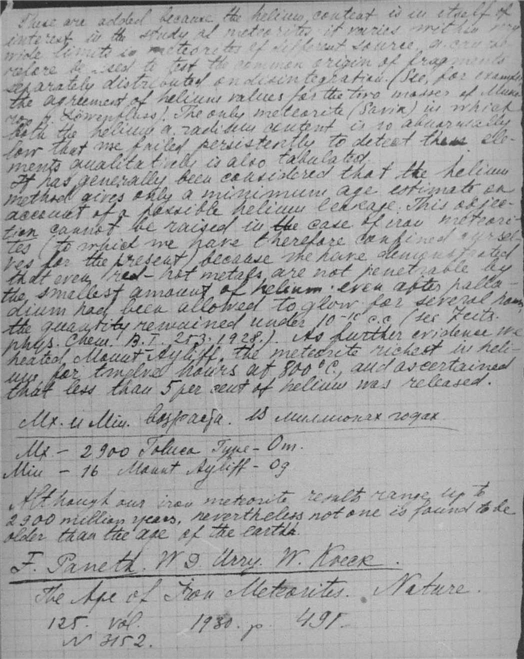 These are added because the helium content is in itself of
interest in the study of meteorites it varies within very
wide limits in meteorites of different source, a. can
be used to test the common origin of fragments
separately distributed on disintegration. (See, for example
the agreement of helium values for the two masses of
The only meteorite (Savin) in which
both the helium a. radium content is so abnormally
low that we failed persistently to detect these ele-
ments qualitatively is also tabulated.
It has generally been considered that the helium
method gives only a minimum age estimate on
account of a possible helium leakage. This objec-
tion cannot be raised in the case of iron meteori-
tes (to which we have therefore confined ourse-
lves for the present) because we have demonstrated
that even red-hot metals are not penetrable by
the smallest amount of helium. even after palla-
dium had been allowed to glow for several hours,
the quantity remained under 10-15 c.c (see Zeits.
phys. Chem. B. I. 253. 1928.). As further evidence we
heated Mount Ayliff, the meteorite richest in heli-
um, for twelve hours at 800°C, and ascertained
that less than 5 per cent of helium was released.
Мх. и Min. возраста. в миллионах годах
Mx - 2900 Toluca Type - Om.
Min - 16 Mount Ayliff - Og
Although our iron meteorite results range up to
2900 million years, nevertheless not one is found to be
older than the age of the earth.
F. Paneth. W D. Urry. W. Koeck.
The Age of Iron Meteorites. Nature.
125. vol. 1930. p. 491-
N 3152.